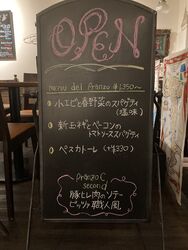 OPEN
menu del Pranzo ¥1,350〜
小エビと春野菜のスパゲティ
(塩味)
新玉ネギとベーコンの
トマトソーススパゲティ
ペスカトーレ (+¥330)
Pranzo C
second
豚ヒレ肉のソテー
ピッツァ職人風